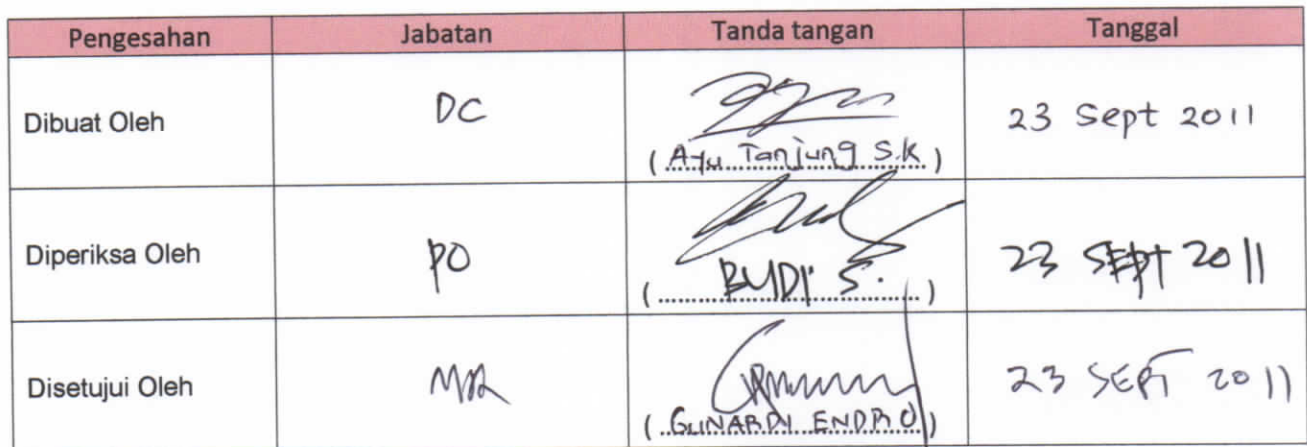 Pengesahan Jabatan Tanda tangan Tanggal
Dibuat Oleh DC (Ayu Tanjung S.K) 23 Sept 2011
Diperiksa Oleh PO (BUDI S.) 23 SEPT 2011
Disetujui Oleh MR (GUNARDI ENDRO) 23 SEPT 2011